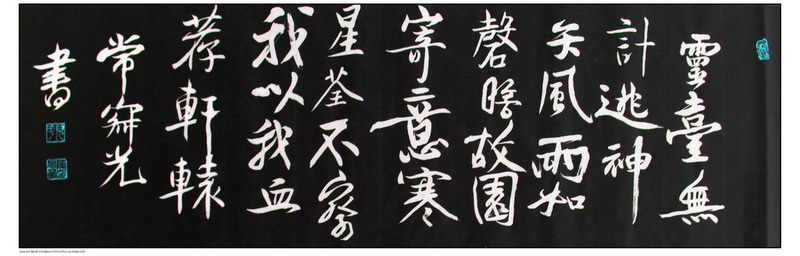 靈臺無
計逃神
矢風雨如
磐暗故園
寄意寒
星荃不察
我以我血
荐軒轅
常光
書